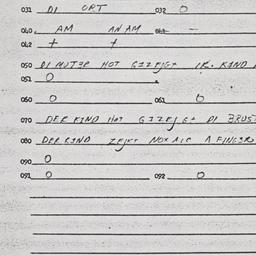 031 DI ORT 032 0
040. AM AN AM 041 -
042 + +
050 DI MUTER HOT GIZEJGT IR. KAND
051 0
060 0 061 0
070 DER KIND HOT GIZEJGT DI BRUST
080 DER KIND ZEJGT NOR AIF A FINGER
090 0
091 0 092 0